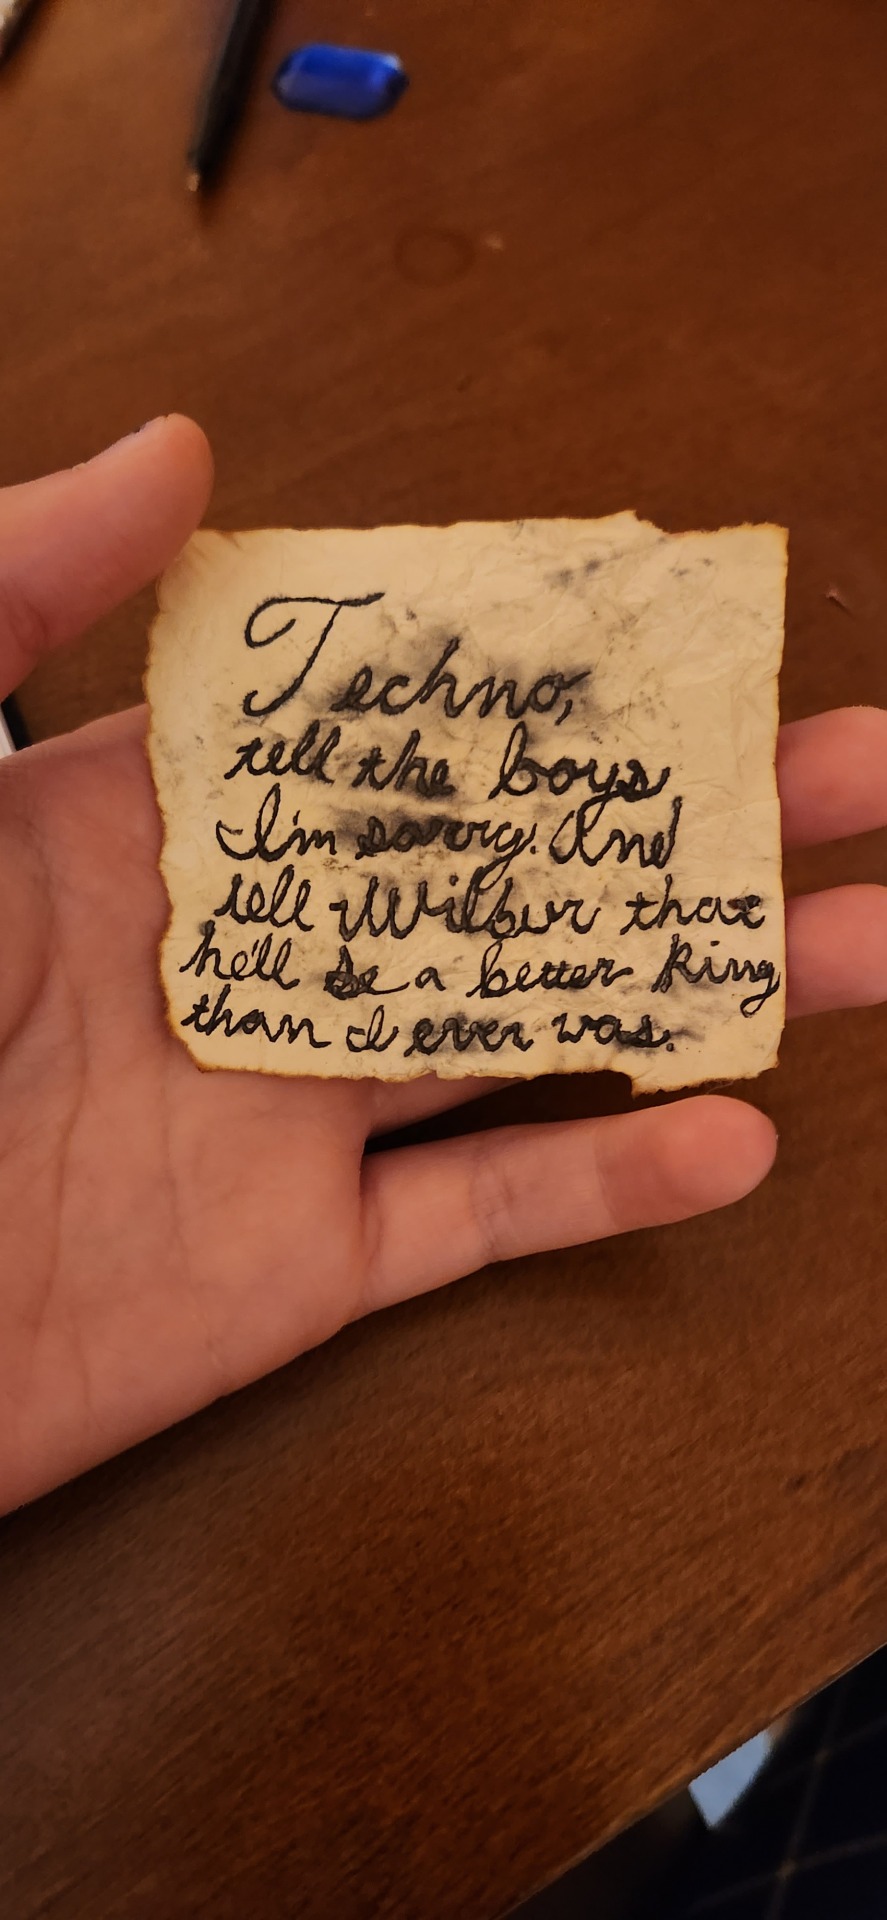 Techno,
tell the boys
I'm sorry. And
tell Wilbur that
he'll be a better King
than I ever was.